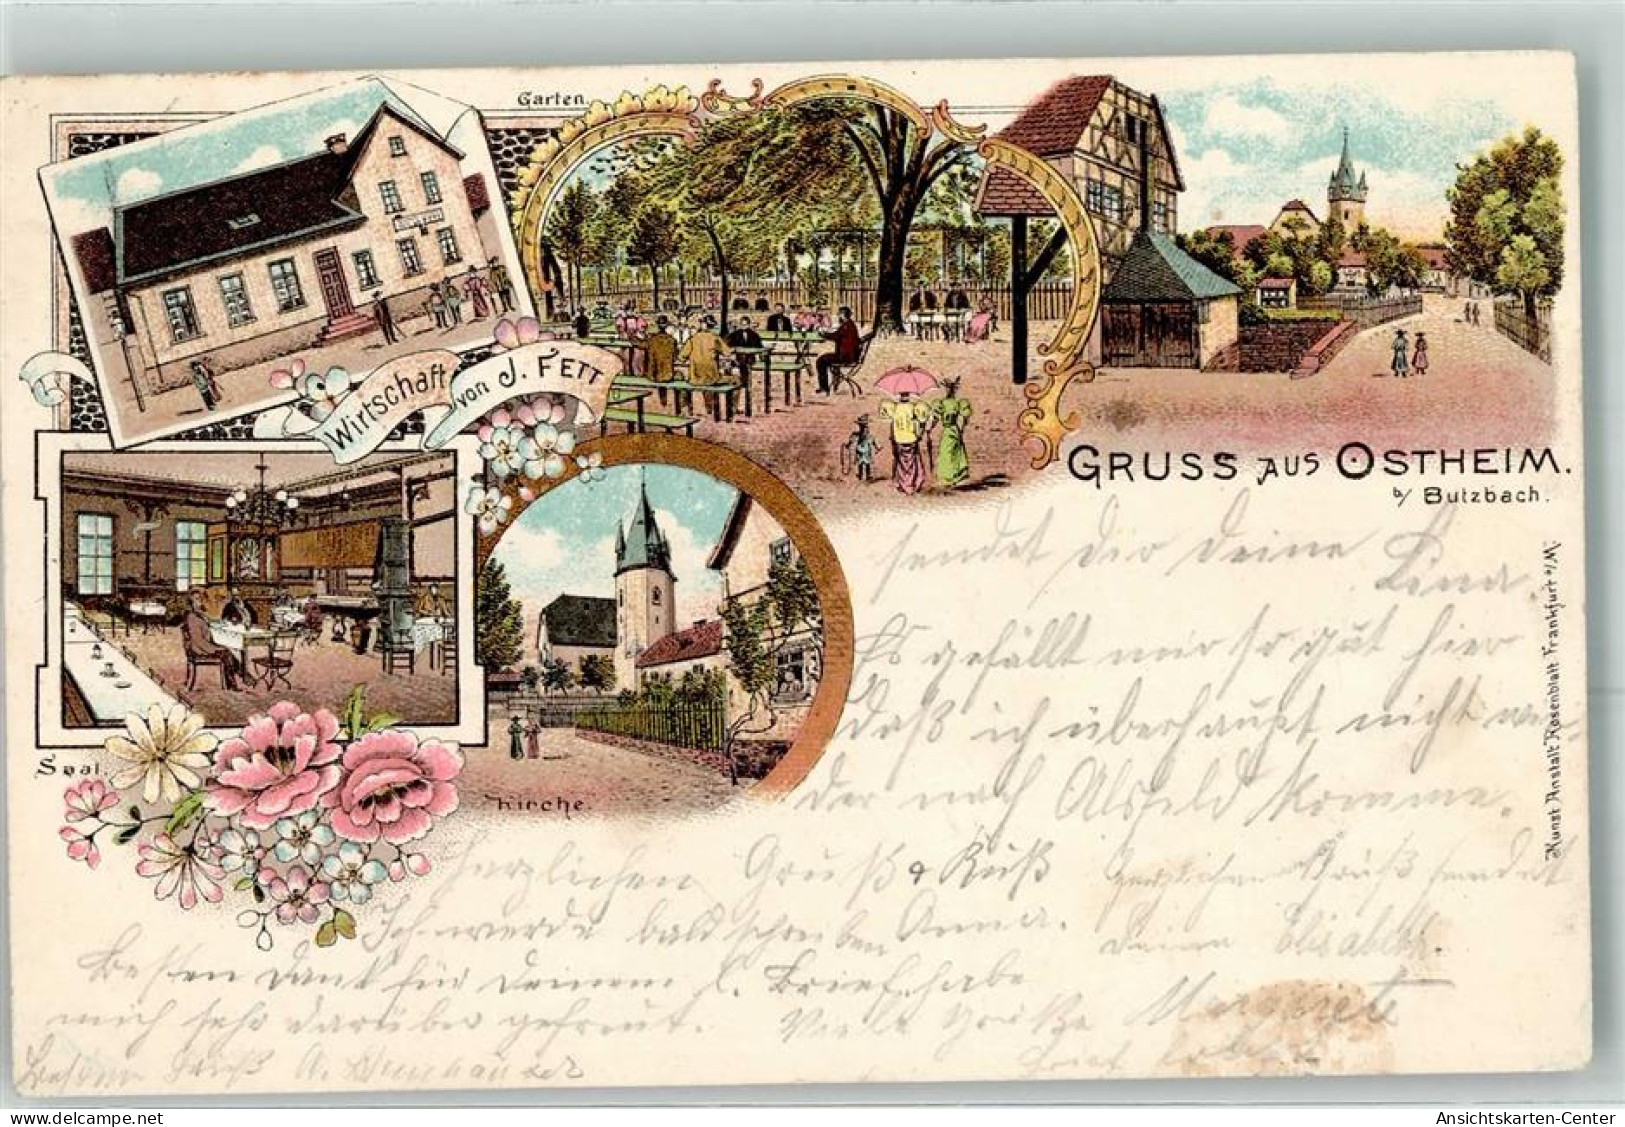 Garten.
Wirtschaft von J. Fett
GRUSS AUS OSTHEIM.
b/ Butzbach.
Saal.
Kirche.
Kunst Anstalt Rosenblatt Frankfurt a/M.
sendet dir deine
Lina.
Es gefällt mir so gut hier
daß ich überhaupt nicht wie-
der nach Alsfeld komme.
Herzlichen Gruß & Kuß
Anna.
Herzlichen Gruß sendet
Deine Elisabeth.
Ich werde bald schreiben
Besten Dank für Deinen l. Brief, habe
mich sehr darüber gefreut.
Viele Grüße Margarete
Gruß A.
Ansichtskarten-Center